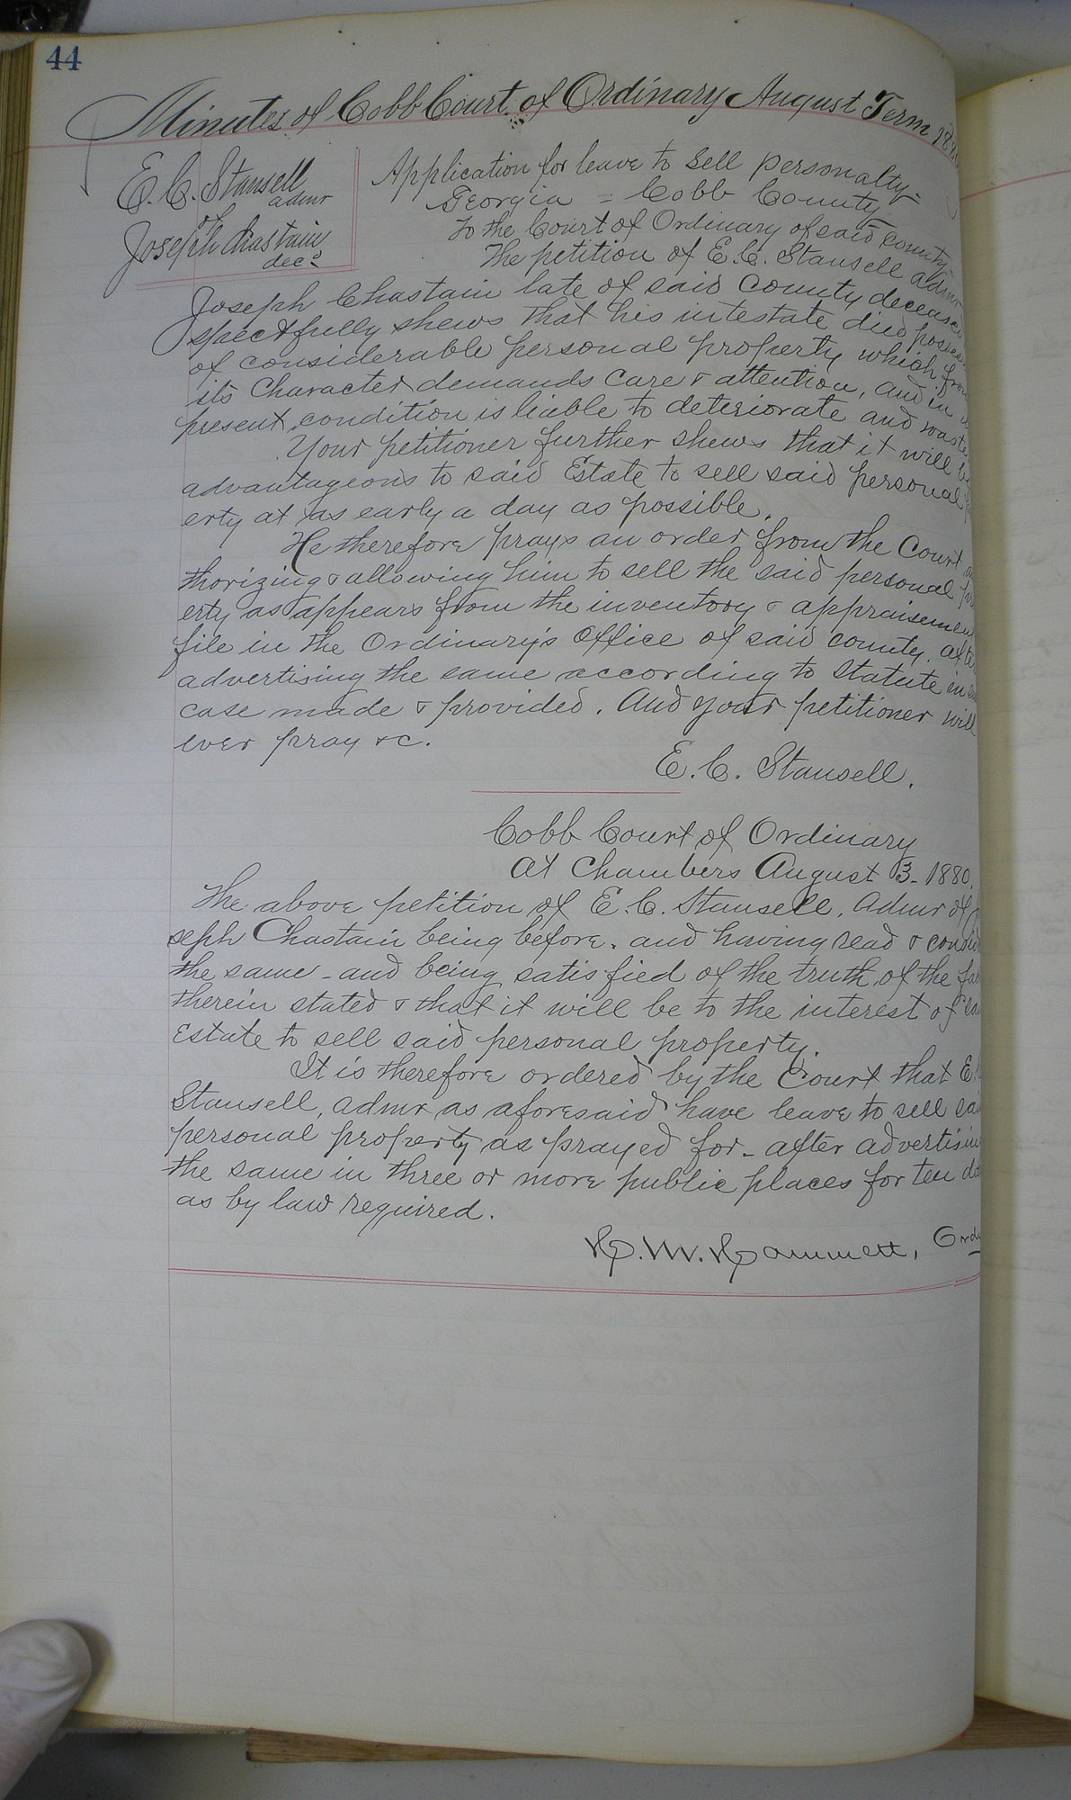 44
Minutes of Cobb Court of Ordinary August Term
E. C. Stansell
admr
of
Joseph Chastain
decd
Application for leave to sell personalty-
Georgia = Cobb County
To the Court of Ordinary of said County-
The petition of E. C. Stansell admr
Joseph Chastain late of said County deceased
spectfully shews that his intestate died
of considerable personal property which from
its Character demands care & attention, and in
present condition is liable to deteriorate and waste
Your petitioner further shews that it will be
advantageous to said Estate to sell said personal
erty at as early a day as possible.
He therefore prays an order from the Court
thorizing & allowing him to sell the said personal
erty as appears from the inventory & appraisement
file in the Ordinary's Office of said county. after
advertising the same according to Statute in
case made & provided. And your petitioner will
ever pray &c.
E. C. Stansell.
Cobb Court of Ordinary
At Chambers August 3- 1880.
The above petition of E. C. Stansell, Admr of
seph Chastain being before. and having read &
the same - and being satisfied of the truth of the
therein stated & that it will be to the interest of
Estate to sell said personal property.
It is therefore ordered by the Court that E.
Stansell, admr as aforesaid have leave to sell
personal property as prayed for - after advertisin
the same in three or more public places for ten
as by law required.
H. M. Hammett, Ord